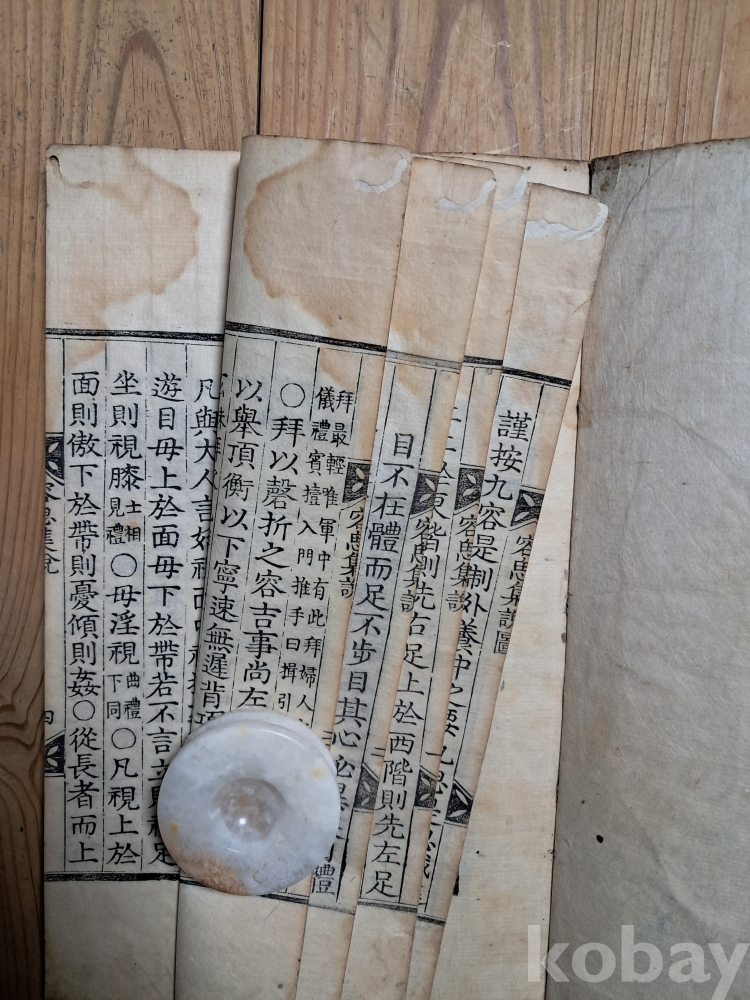 謹按九容是制外養中之要九思
容思集說圖
容思集說
上於西階則先左足
容思集說
目不在體而足不步目其心必
容思集說
拜最輕唯軍中有此拜婦人
儀禮賓擅入門推手曰揖引
○拜以磬折之容吉事尚左
以舉頂衡以下寧速無遲背項
凡與大人言始視面中視
遊目毋上於面毋下於帶若不言立則視足
坐則視膝士相見禮○毋淫視曲禮下同○凡視上於
面則傲下於帶則憂傾則姦○從長者而上
容思集說
四
kobay